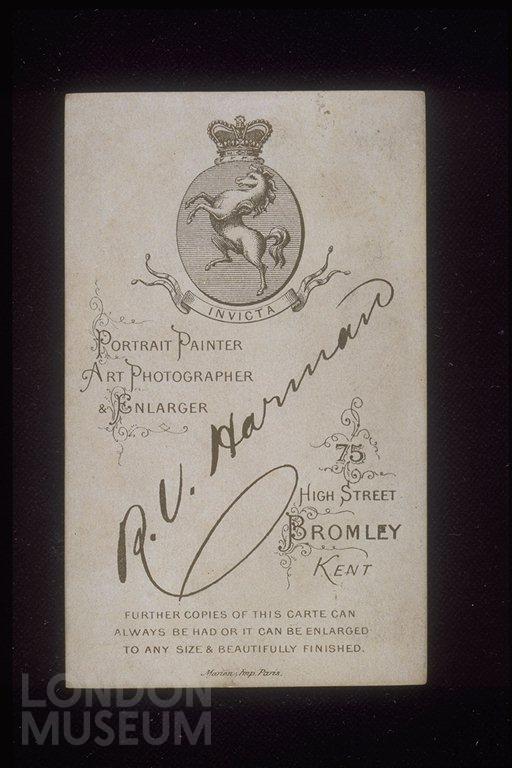 INVICTA
PORTRAIT PAINTER
ART PHOTOGRAPHER
& ENLARGER
R. V. Harman
75
HIGH STREET
BROMLEY
KENT
FURTHER COPIES OF THIS CARTE CAN
ALWAYS BE HAD OR IT CAN BE ENLARGED
TO ANY SIZE & BEAUTIFULLY FINISHED.
Marion, Imp. Paris.
LONDON
MUSEUM